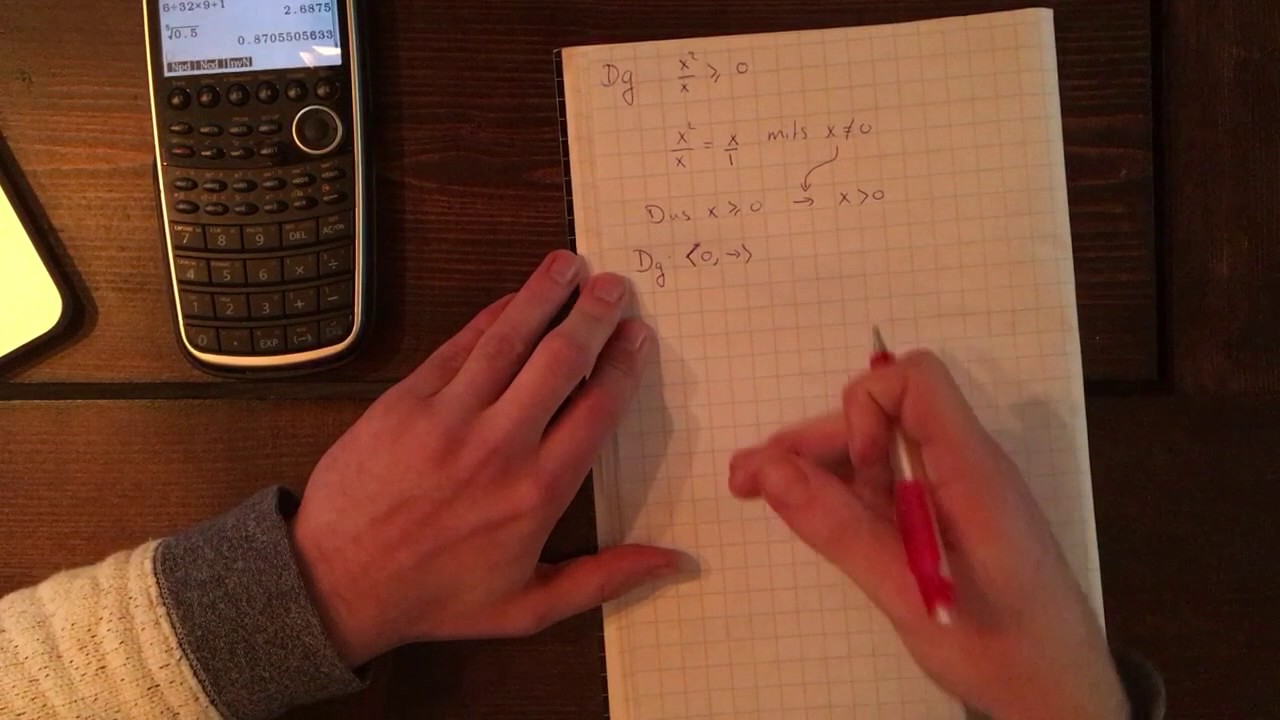 6÷32×9+1
2.6875
⁵√0.5
0.8705505633
Npd Ncd InvN
7 8 9 DEL AC/ON
4 5 6 × ÷
1 2 3 + −
0 . EXP (−)
Dg x²/x ⩾ 0
x²/x = x/1 mits x ≠ 0
Dus x ⩾ 0 → x > 0
Dg: ⟨0, →⟩